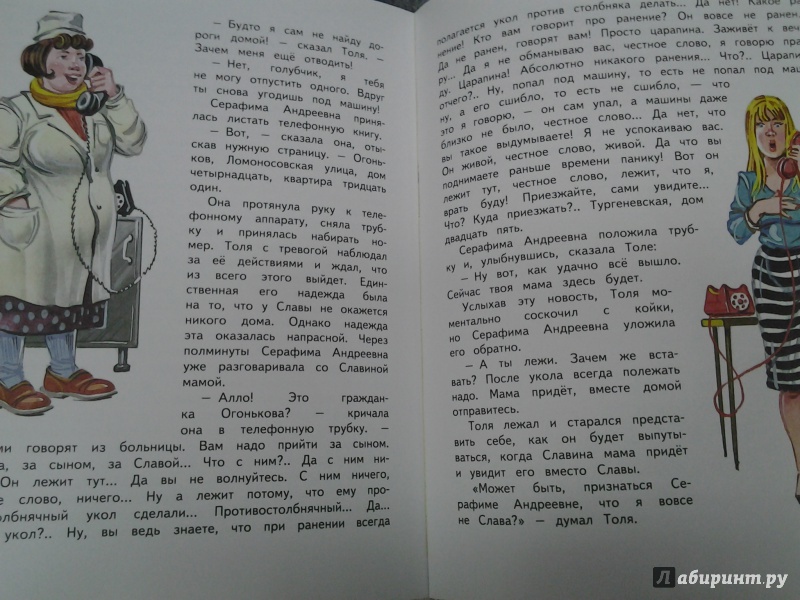 — Будто я сам не найду до-
роги домой! — сказал Толя. —
Зачем меня ещё отводить!
— Нет, голубчик, я тебя
не могу отпустить одного. Вдруг
ты снова угодишь под машину!
Серафима Андреевна приня-
лась листать телефонную книгу.
— Вот, — сказала она, оты-
скав нужную страницу. — Огонь-
ков, Ломоносовская улица, дом
четырнадцать, квартира тридцать
один.
Она протянула руку к теле-
фонному аппарату, сняла труб-
ку и принялась набирать но-
мер. Толя с тревогой наблюдал
за её действиями и ждал, что
из всего этого выйдет. Един-
ственная его надежда была
на то, что у Славы не окажется
никого дома. Однако надежда
эта оказалась напрасной. Через
полминуты Серафима Андреевна
уже разговаривала со Славиной
мамой.
— Алло! Это граждан-
ка Огонькова? — кричала
она в телефонную трубку. —
говорят из больницы. Вам надо прийти за сыном.
за сыном, за Славой... Что с ним?.. Да с ним ни-
Он лежит тут... Да вы не волнуйтесь. С ним ничего,
слово, ничего... Ну а лежит потому, что ему про-
столбнячный укол сделали... Противостолбнячный... Да...
укол?.. Ну, вы ведь знаете, что при ранении всегда
полагается укол против столбняка делать... Да нет! Какое ра-
нение! Кто вам говорит про ранение? Он вовсе не ранен,
Да не ранен, говорят вам! Просто царапина. Заживёт к веч
ру... Да я не обманываю вас, честное слово, я говорю прав
ду. Царапина! Абсолютно никакого ранения... Что?.. Царапи
отчего?.. Ну, попал под машину, то есть не попал под маш
ну, а его сшибло, то есть не сшибло, — что
это я говорю, — он сам упал, а машины даже
близко не было, честное слово... Да нет, что
вы такое выдумываете! Я не успокаиваю вас.
Он живой, честное слово, живой. Да что вы
поднимаете раньше времени панику! Вот он
лежит тут, честное слово, лежит, что я,
врать буду! Приезжайте, сами увидите...
Что? Куда приезжать?.. Тургеневская, дом
двадцать пять.
Серафима Андреевна положила труб-
ку и, улыбнувшись, сказала Толе:
— Ну вот, как удачно всё вышло.
Сейчас твоя мама здесь будет.
Услыхав эту новость, Толя мо-
ментально соскочил с койки,
но Серафима Андреевна уложила
его обратно.
— А ты лежи. Зачем же вста-
вать? После укола всегда полежать
надо. Мама придёт, вместе домой
отправитесь.
Толя лежал и старался предста-
вить себе, как он будет выпуты-
ваться, когда Славина мама придёт
и увидит его вместо Славы.
«Может быть, признаться Се-
рафиме Андреевне, что я вовсе
не Слава?» — думал Толя.
Лабиринт.ру